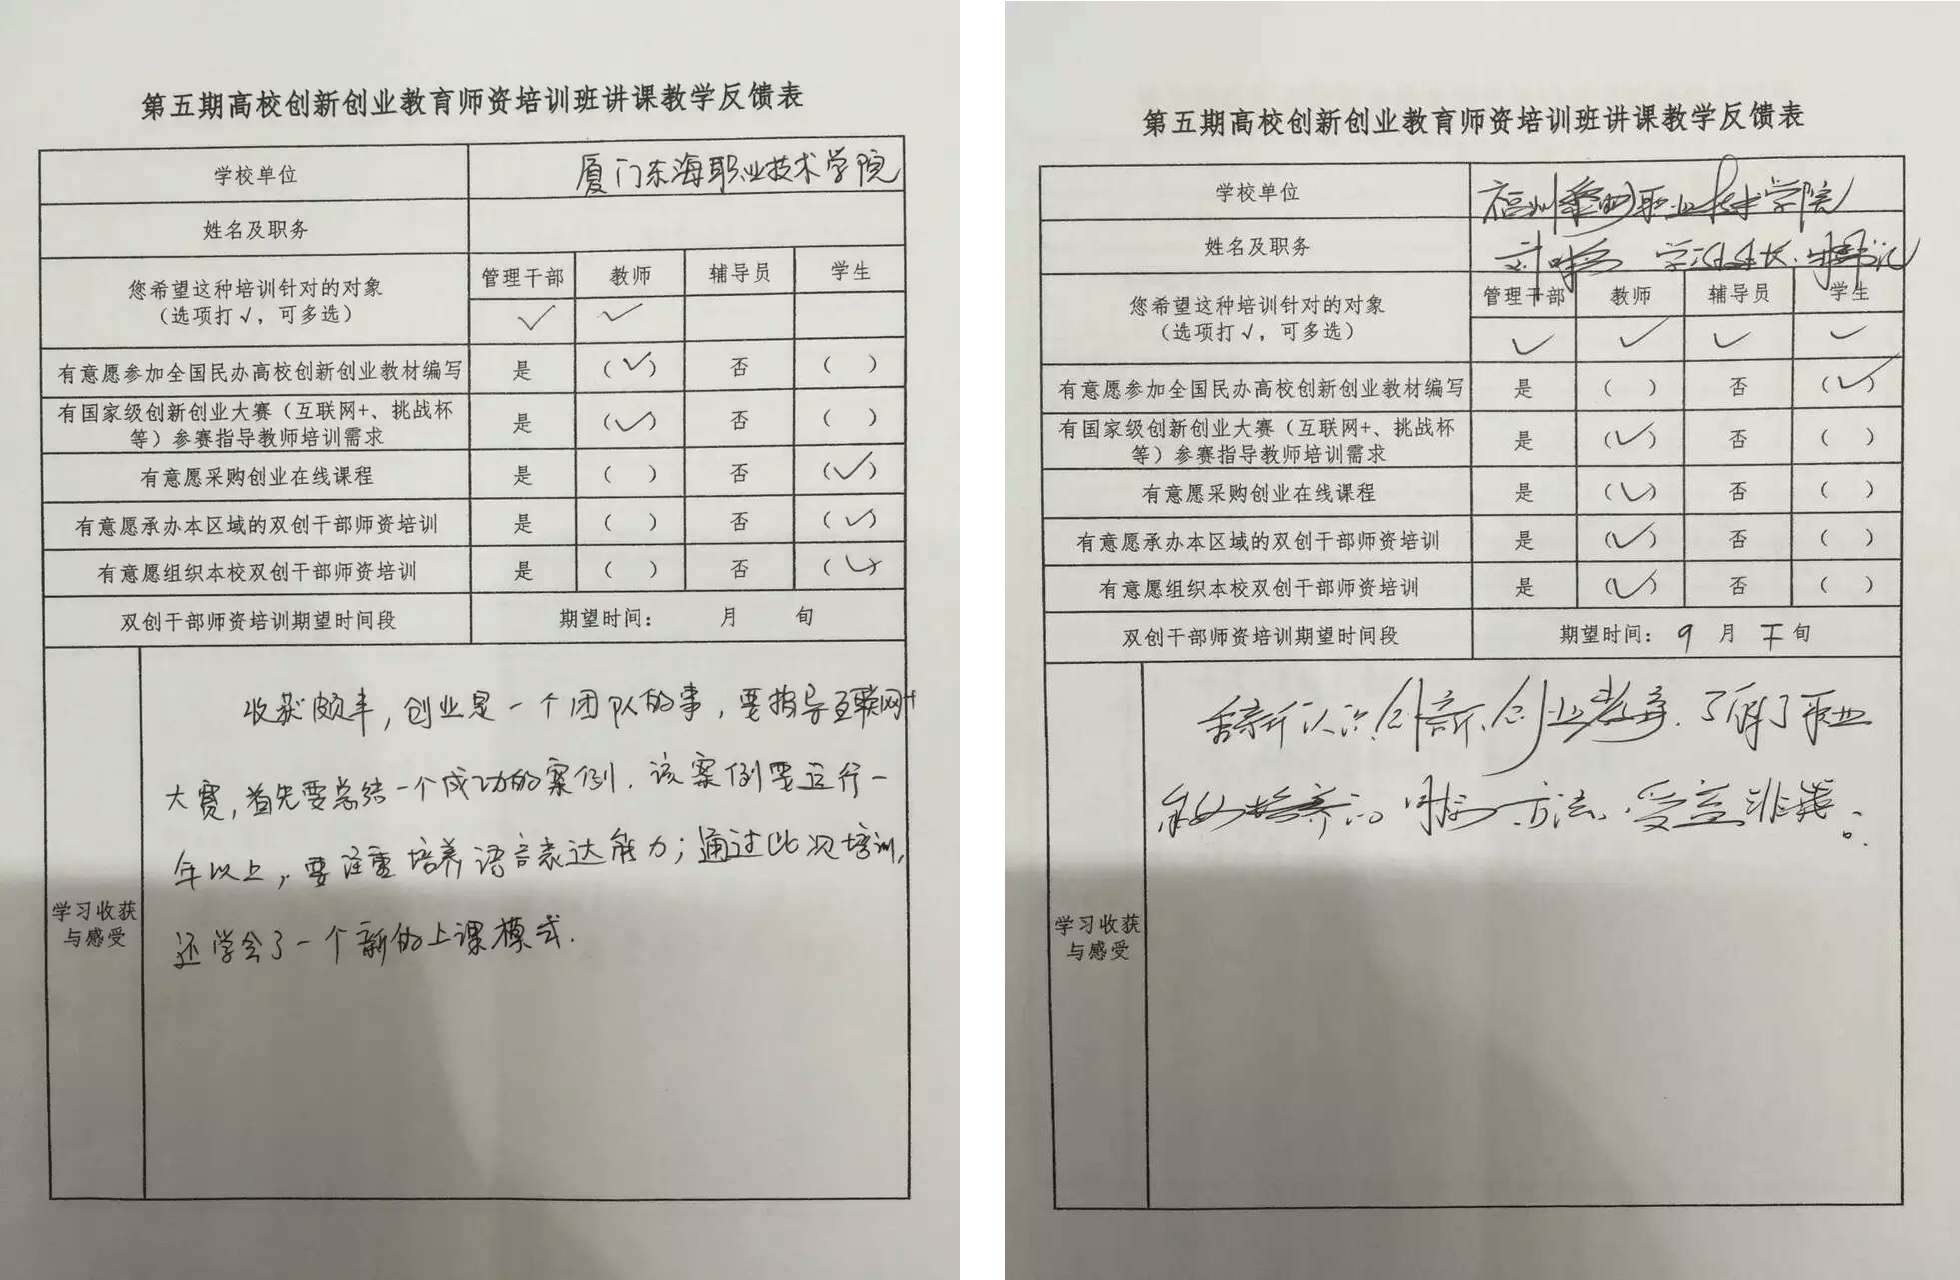 第五期高校创新创业教育师资培训班讲课教学反馈表
学校单位 厦门东海职业技术学院
姓名及职务
您希望这种培训针对的对象
（选项打√，可多选）
管理干部 教师 辅导员 学生
√ √
有意愿参加全国民办高校创新创业教材编写 是 (√) 否 ( )
有国家级创新创业大赛（互联网+、挑战杯
等）参赛指导教师培训需求 是 (√) 否 ( )
有意愿采购创业在线课程 是 ( ) 否 (√)
有意愿承办本区域的双创干部师资培训 是 ( ) 否 (√)
有意愿组织本校双创干部师资培训 是 ( ) 否 (√)
双创干部师资培训期望时间段 期望时间： 月 旬
学习收获
与感受
收获颇丰，创业是一个团队的事，要指导互联网+
大赛，首先要总结一个成功的案例．该案例要运行一
年以上，要注重培养语言表达能力；通过此次培训，
还学会了一个新的上课模式．
第五期高校创新创业教育师资培训班讲课教学反馈表
学校单位 福州黎明职业技术学院
姓名及职务 刘
您希望这种培训针对的对象
（选项打√，可多选）
管理干部 教师 辅导员 学生
√ √ √ √
有意愿参加全国民办高校创新创业教材编写 是 ( ) 否 (√)
有国家级创新创业大赛（互联网+、挑战杯
等）参赛指导教师培训需求 是 (√) 否 ( )
有意愿采购创业在线课程 是 (√) 否 ( )
有意愿承办本区域的双创干部师资培训 是 (√) 否 ( )
有意愿组织本校双创干部师资培训 是 (√) 否 ( )
双创干部师资培训期望时间段 期望时间：9 月 下 旬
学习收获
与感受
重新认识创新、创业教育．了解了
培养的 方法，受益非浅。